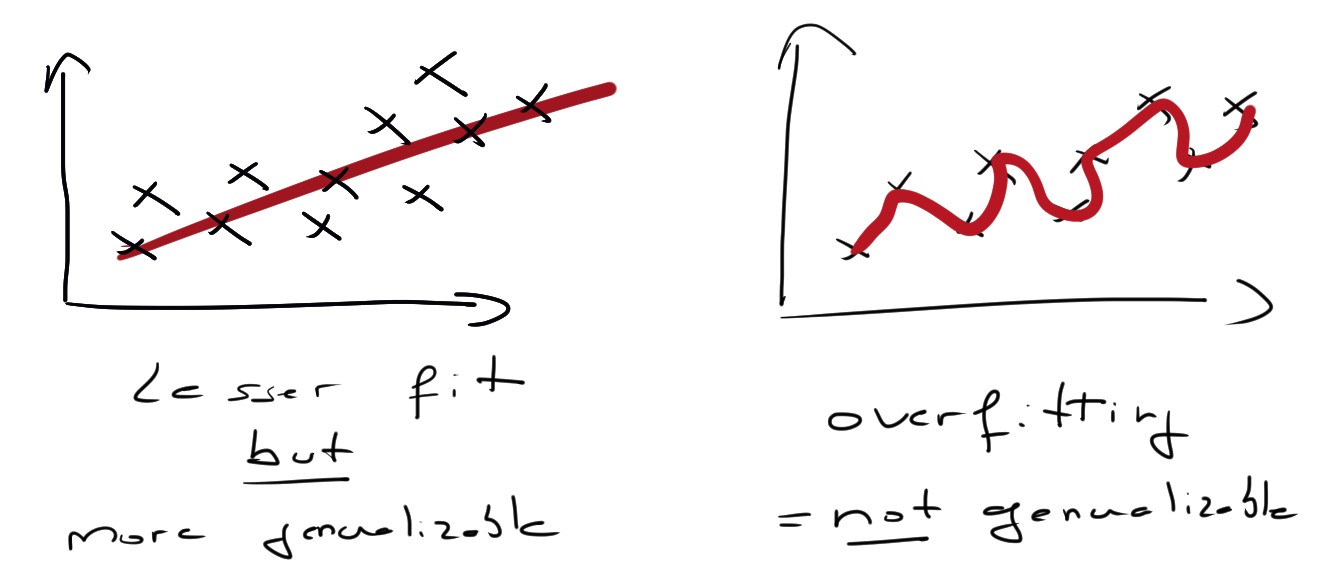 Lesser fit
but
more generalizable
overfitting
= not generalizable